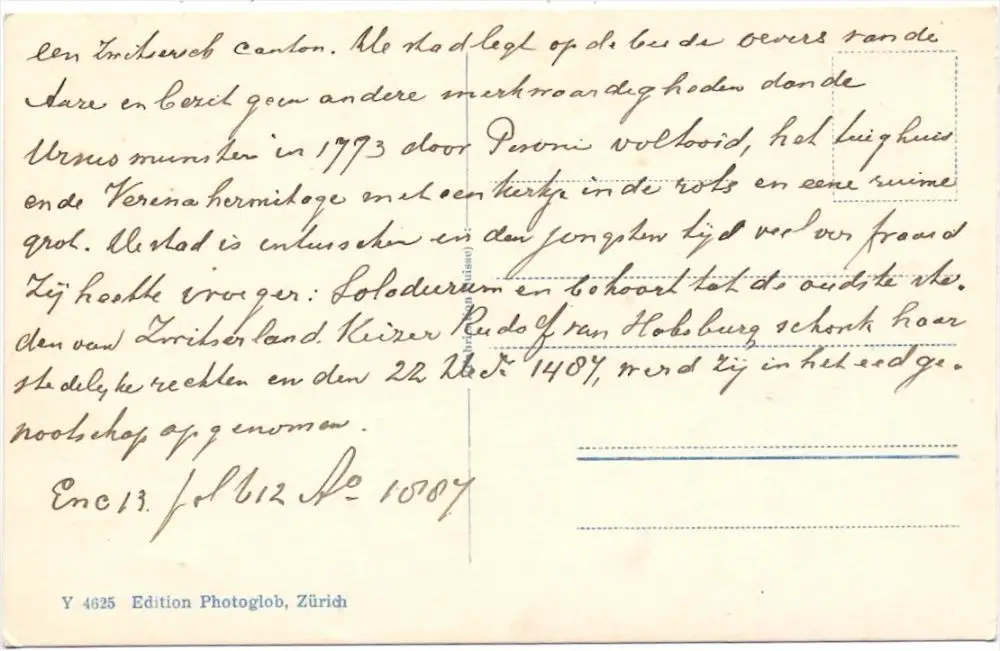 een Zwitsersch canton. De stad legt op de beide oevers van de
Aare en bezit geen andere merkwaardigheden dan de
Ursus munster in 1773 door Pisoni voltooid, het tuighuis
en de Verena hermitage met een kerkje in de rots en eene ruime
grot. De stad is intusschen in den jongsten tijd veel verfraaid
Zij heette vroeger: Solodurum en behoort tot de oudste ste-
den van Zwitserland. Keizer Rudolf van Habsburg schonk haar
stedelyke rechten en den 22 1487, werd zij in het eedge-
nootschap opgenomen.
Enc 13. fol 612 Ao 1887
Y 4625 Edition Photoglob, Zürich